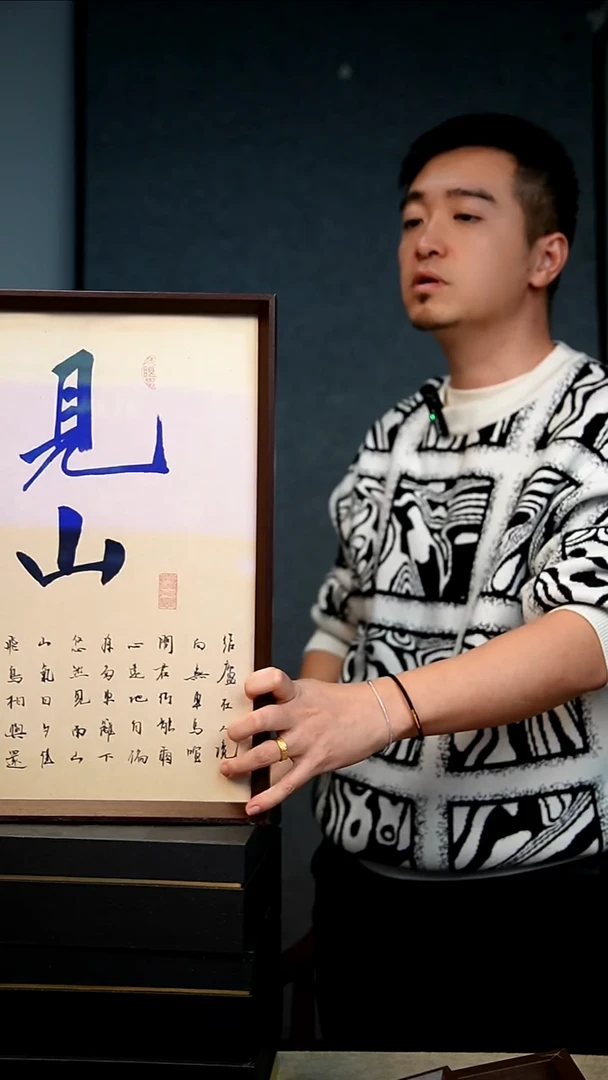 見山
結廬在人境
而無車馬喧
問君何能爾
心遠地自偏
採菊東籬下
悠然見南山
山氣日夕佳
飛鳥相與還